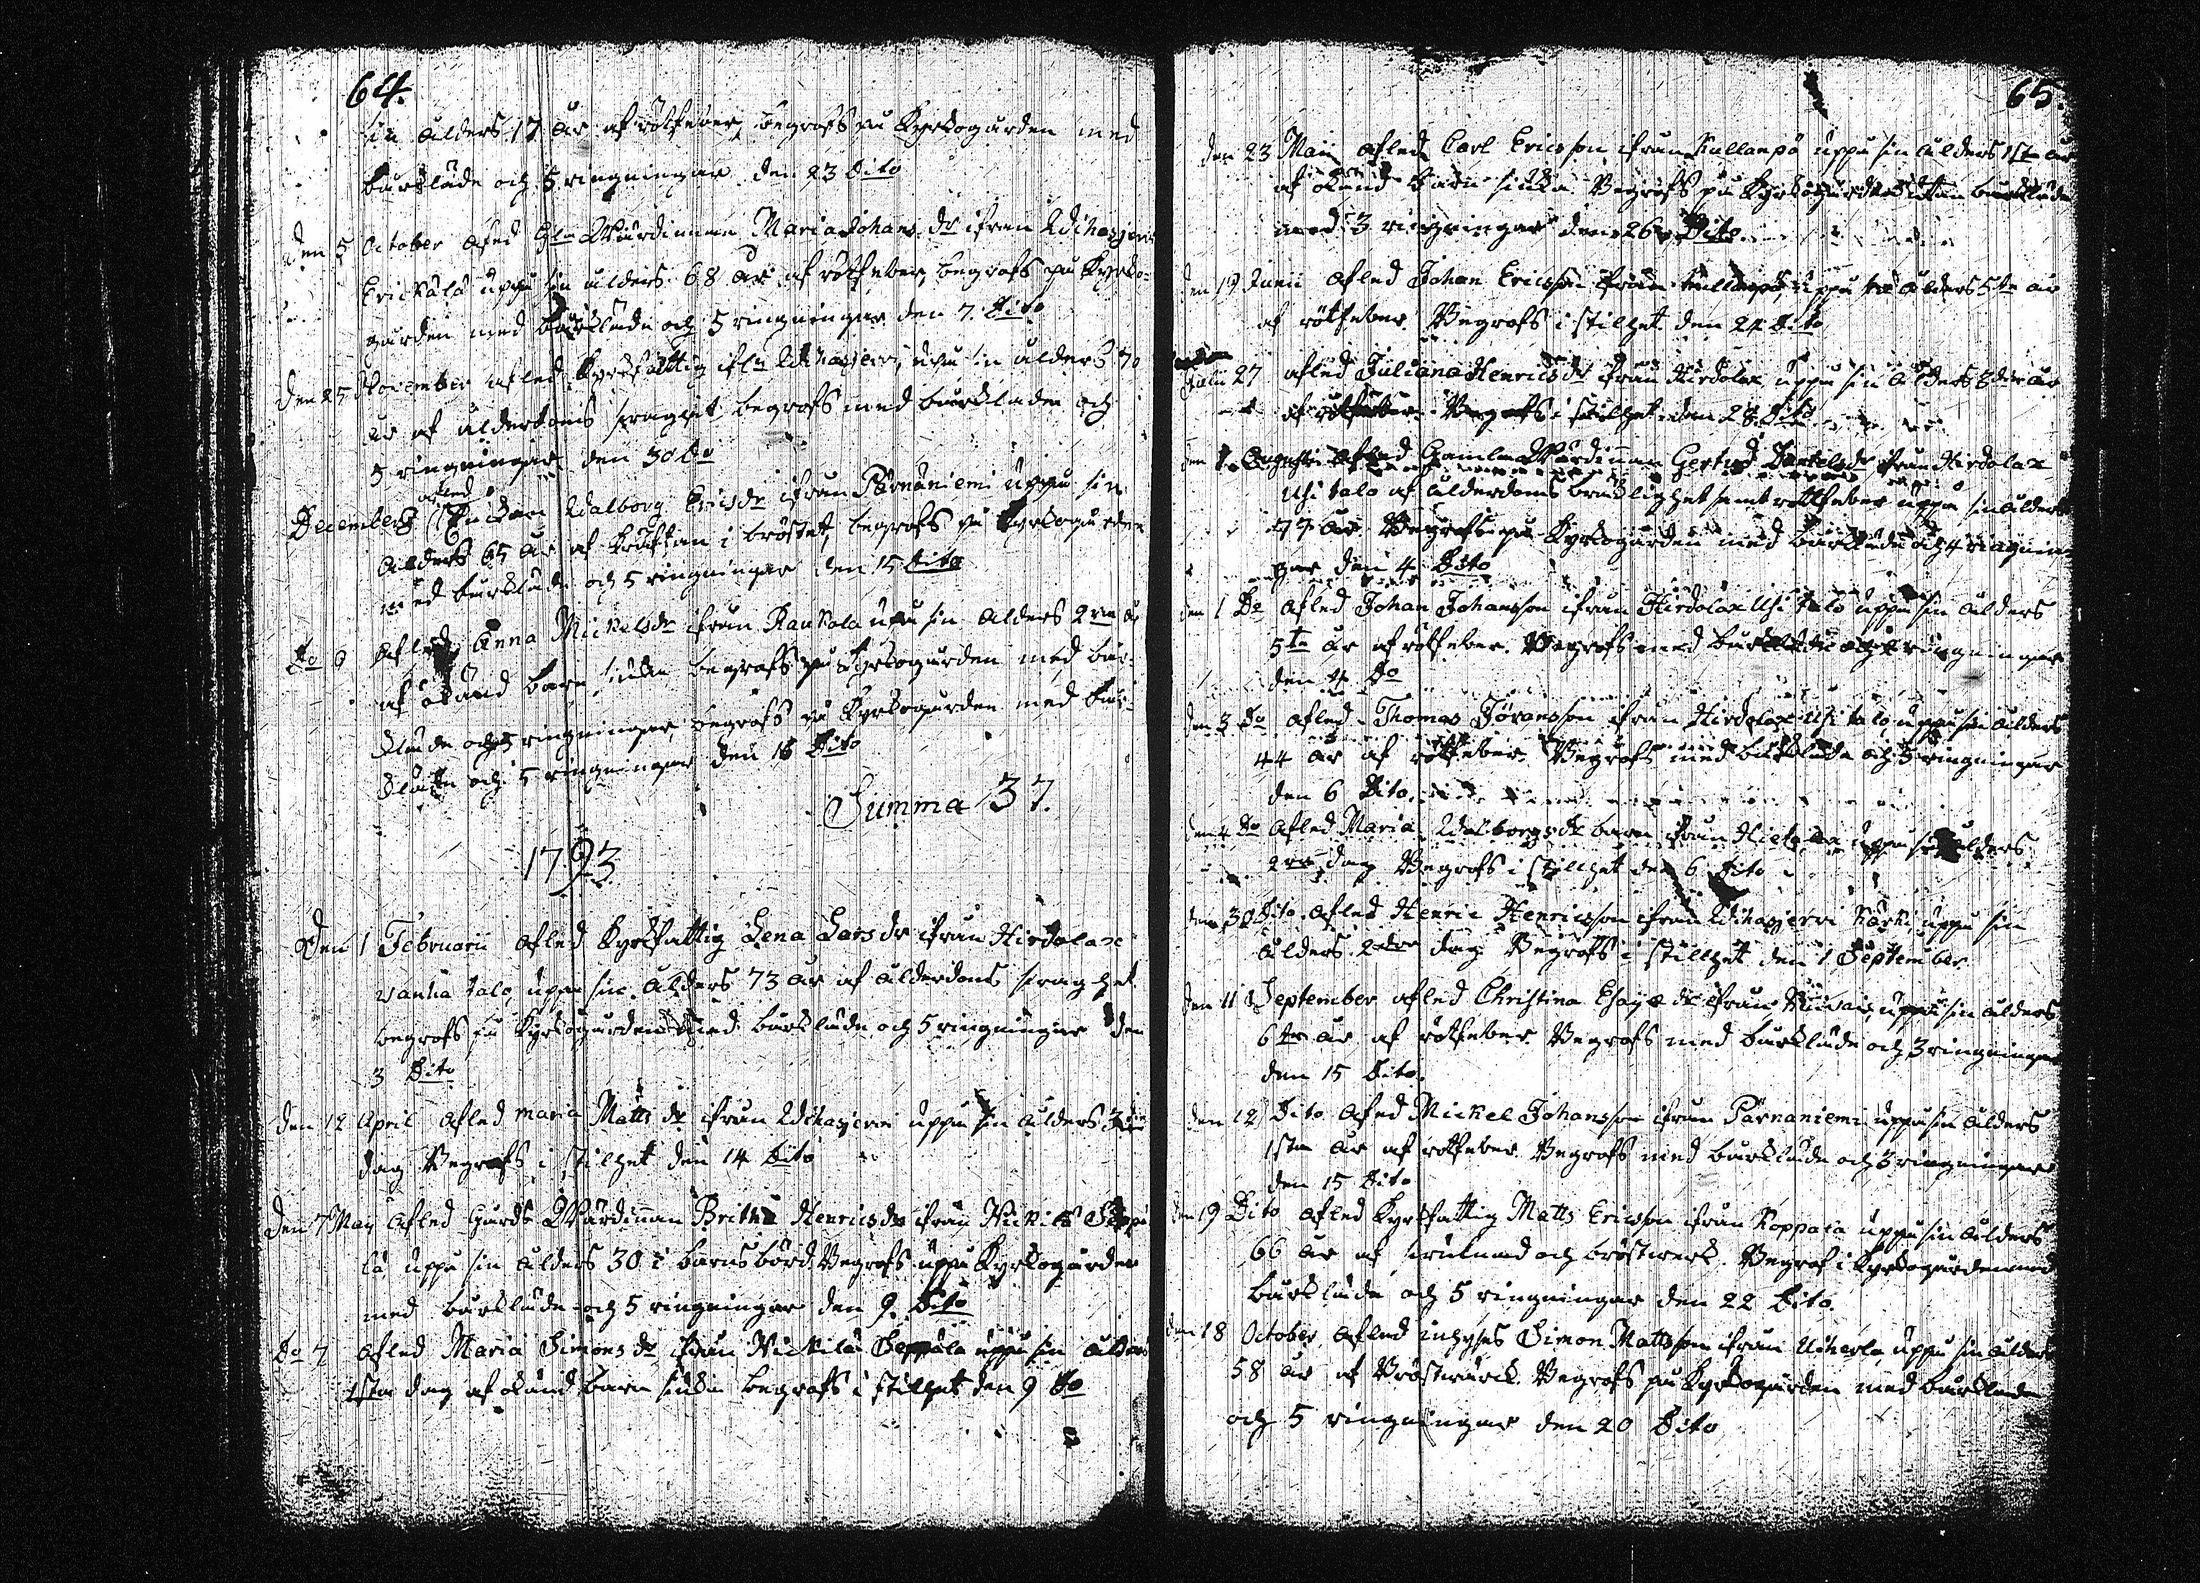 64.
sin ålders 17 år af rötfeber, begrofs på Kyrkogården med
bårkläde och 5 ringningar den 23 Dito
den 5 October afled Gla Wärdinnan Maria Johans dr ifrån Wihasjerwi
Erickälä uppå sin ålders 68 år af rötfeber, begrofs på Kyrko-
gården med bårkläde och 5 ringningar den 7 Dito
den 25 November afled Kyrkfattig ifrån Wihasjerwi, uppå sin ålders 70
år af ålderdoms svaghet begrofs med bårkläde och
5 ringningar den 30 Do
December afled Enckan Walborg Ericsdr ifrån Pärnäniemi uppå sin
ålders 65 år af kräftan i bröstet, begrofs på Kyrkogården
med bårkläde och 5 ringningar den 15 Dito
Do 9 Afled Anna Mickelsdr ifrån Raukala uppå sin ålders 2dra år
af okänd barn siuka begrofs på Kyrkogården med bår-
kläde och 5 ringningar begrofs på Kyrkogården med bår-
kläde och 5 ringningar den 16 Dito
Summa 37.
1793
Den 1 Februarii afled Kyrkfattig Lena Lars dr ifrån Hirdolax
vanha talo, uppå sin ålders 73 år af ålderdoms svaghet
begrofs på Kyrkogården med bårkläde och 5 ringningar den
3 Dito
den 12 April afled Maria Matts dr ifrån Wihasjerwi uppå sin ålders 3die
dag Begrofs i stilhet den 14 Dito
Den 7 Maij Afled Gårds Wärdinnan Britha Henricsdr ifrån Nickilä Seppä
lä uppå sin ålders 30 i barnsbörd. Begrofs uppå Kyrkogården
med bårkläde och 5 ringningar den 9 Dito
Do 7 Afled Maria Simons dr ifrån Nickilä Seppälä uppå sin ålders
1sta dag af okänd barn siuka begrofs i stilhet den 9 Do
65.
den 23 Maij afled Carl Ericsson ifrån Kullanpä uppå sin ålders 1sta år
af okänd barn siuka. Begrofs på Kyrkogården utan bårkläde
med 3 ringningar den 26 Dito
den 19 Junii afled Johan Ericsson ifrån Kullanpä, uppå sin ålders 5te år
af rötfeber. Begrofs i stilhet den 24 Dito
Julii 27 afled Juliana Henricsdr ifrån Hirdolax uppå sin ålders 3die år
af rötfeber. Begrofs i stilhet den 28 Dito
den 1 Augusti afled Gamla Wärdinnan Gertrud Danielsdr ifrån Hirdolax
Usi talo af ålderdoms bräklighet samt rötfeber uppå sin ålders
77 år Begrofs på Kyrkogården med bårkläde och 4 ringnin-
gar den 4 Dito
den 1 Do afled Johan Johansson ifrån Hirdolax Usi talo uppå sin ålders
5te år af rötfeber. Begrofs med bårkläde och ringningar
den 4 Do
den 3 Do afled Thomas Jöransson ifrån Hirdolax Usi talo, uppå sin ålders
44 år af rötfeber. Begrofs med bårkläde och 5 ringningar
den 6 Dito
den 4 Do afled Maria Walborgsdr barn ifrån uppå sin ålders
2dra dag Begrofs i stillhet den 6 Dito
den 30 Dito. Afled Henric Henricsson ifrån Wihasjerwi Kärki, uppå sin
ålders 2dra dag Begrofs i stillhet den 1 September.
den 11 September afled Christina Esajæ dr ifrån uppå sin ålders
6te år af rötfeber Begrofs med bårkläde och 3 ringningar
den 15 Dito.
den 12 Dito Afled Mickel Johansson ifrån Pärnäniemi uppå sin ålders
1sta år af rötfeber Begrofs med bårkläde och 3 ringningar
den 15 Dito
den 19 Dito afled Kyrkfattig Matts Ericsson ifrån Koppala uppå sin ålders
66 år af och bröstwerk. Begrof i Kyrkogården med
bårkläde och 5 ringningar den 22 Dito.
den 18 October afled inhyses Simon Mattsson ifrån Uiherla uppå sin ålders
58 år af Bröstwärck. Begrofs på Kyrkogården med bårkläde
och 5 ringningar den 20 Dito